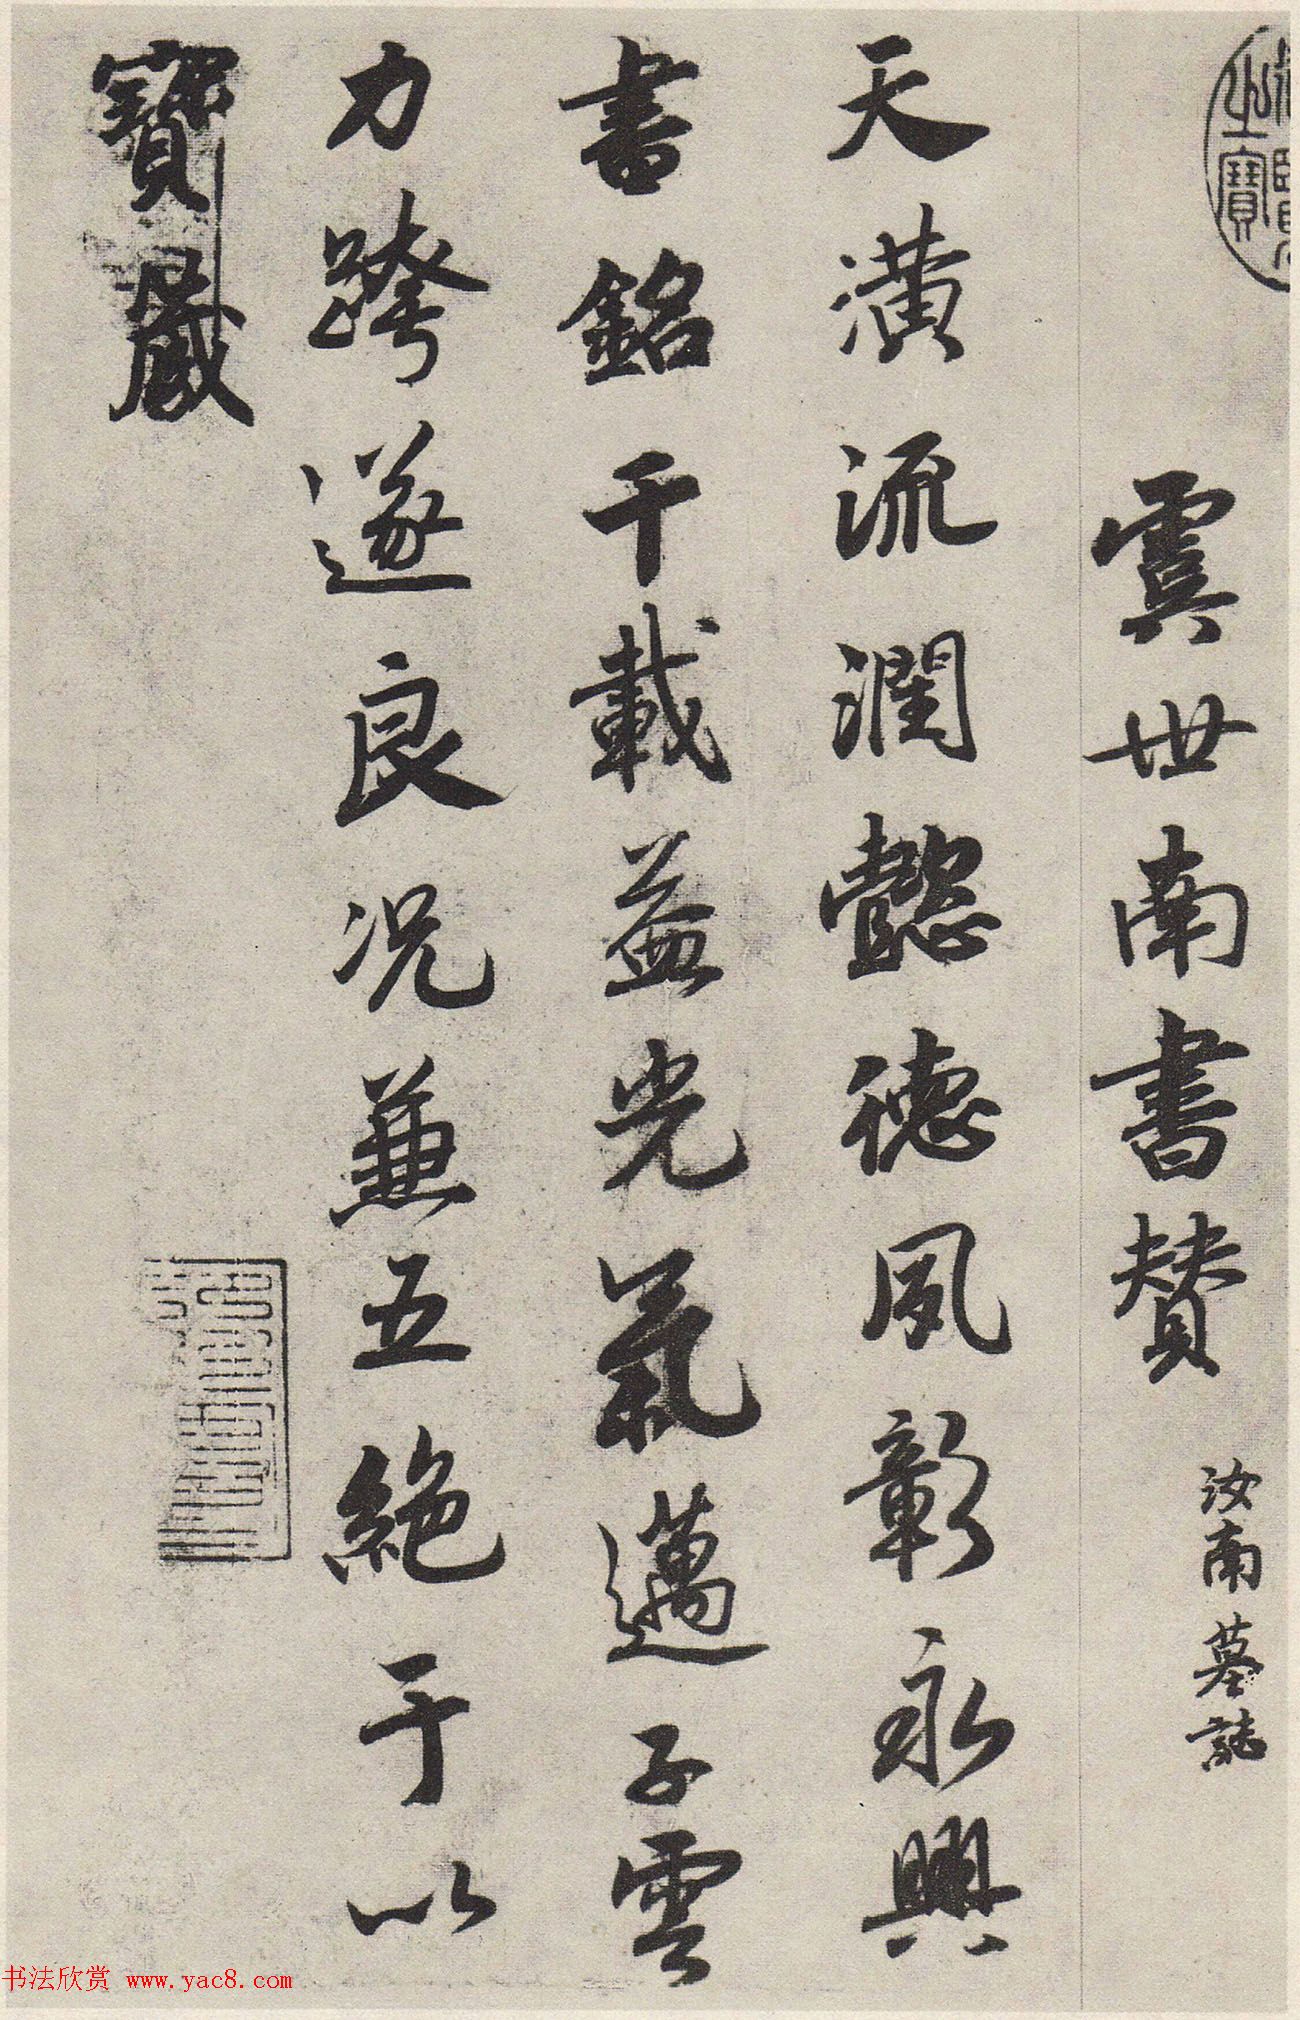 虞世南書贊 汝南墓誌
天潢流潤懿德夙彰永興
書銘千載益光氣邁子雲
力跨遂良况兼五絶于以
寶藏
书法欣赏 www.yac8.com